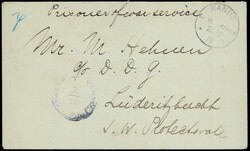 Prisoner of war service
Mr. M. Hehnen
c/o D. D. G.
Lüderitzbucht
S. W. Protectorate